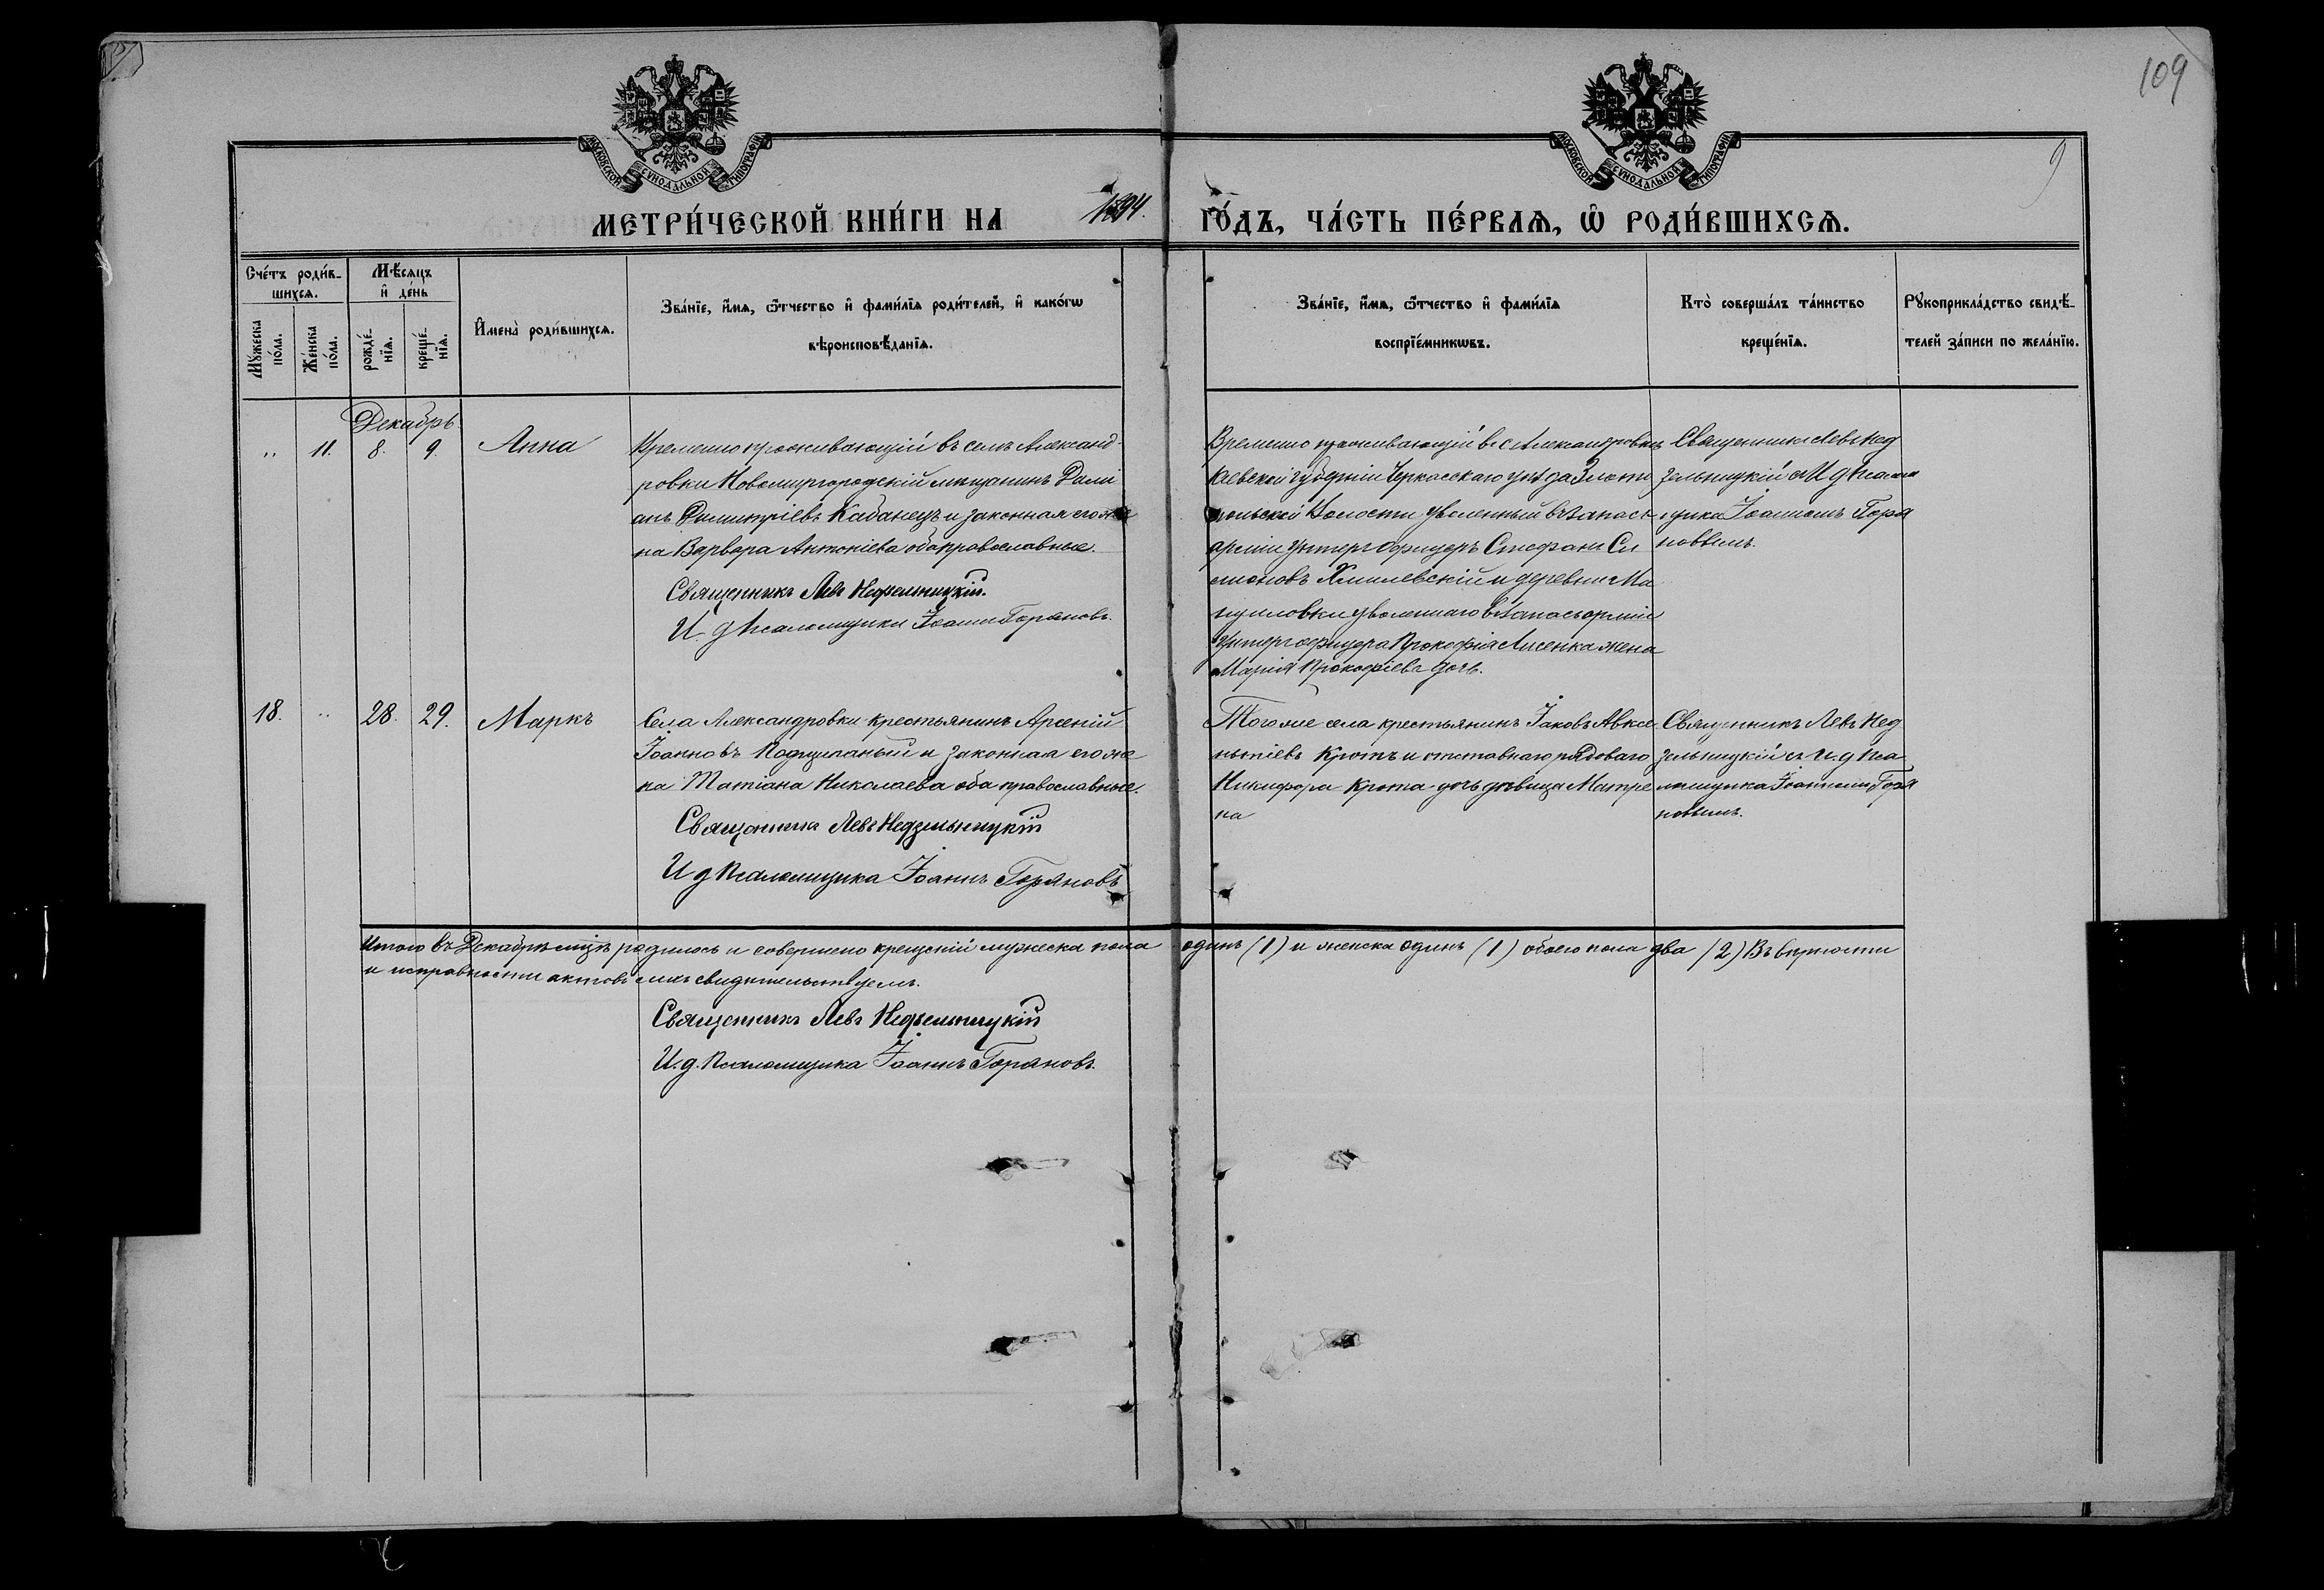 109
9
МОСКОВСКОЙ СѴНОДАЛЬНОЙ ТИПОГРАФІИ
МОСКОВСКОЙ СѴНОДАЛЬНОЙ ТИПОГРАФІИ
МЕТРИ́ЧЕСКОЙ КНИ́ГИ НА 1894. ГО́ДЪ, ЧА́СТЬ ПЕ́РВАѦ, Ѽ РОДИ́ВШИХСѦ.
Сче́тъ роди́в-
шихсѧ.
Мꙋ́жеска
по́ла.
Же́нска
по́ла.
Мѣ́сѧцъ
и҆ де́нь
рожде́-
нїѧ.
креще́-
нїѧ.
И҆мена̀ роди́вшихсѧ.
Зва́нїе, и҆́мѧ, ѻ҆́тчество и҆ фами́лїѧ роди́телей, и҆ како́гѡ
вѣроисповѣ́данїѧ.
Зва́нїе, и҆́мѧ, ѻ҆́тчество и҆ фами́лїѧ
воспрїе́мникѡвъ.
Кто̀ соверша́лъ та́инство
креще́нїѧ.
Рꙋкоприкла́дство свидѣ́-
телей за́писи по жела́нїю.
Декабрь
„ 11. 8. 9. Анна
Временно проживающій въ селѣ Александ-
ровки Новомиргородскій мѣщанинъ Дамі
анъ Димитріевъ Кабанецъ и законная его же
на Варвара Антоніева оба православные.
Священникъ Левъ Недзельницкій.
И. д Псаломщика Іоаннъ Горяновъ.
Временно проживающій в с Александровкѣ
Кіевской губерніи Черкасскаго уѣзда Злато
польской Волости уволенный въ запасъ
арміи унтеръ офицеръ Стефанъ Си
моновъ Хмилевскій и деревни Ма
цуловки уволеннаго въ запасъ арміи
унтеръ офицера Прокофія Лисенка жена
Марія Прокофіева дочь.
Священникъ Левъ Нед
зельницкій съ И д Псалом
щика Іоанномъ Горя
новымъ.
18. „ 28. 29. Маркъ
Села Александровки крестьянинъ Арсеній
Іоанновъ Подщипаный и законная его же
на Татіана Николаева оба православные.
Священникъ Левъ Недзельницкій
И д Псаломщика Іоаннъ Горяновъ
Тогоже села крестьянинъ Іаковъ Авксе
нтіевъ Кротъ и отставнаго рядоваго
Никифора Крота дочь дѣвица Матре
на
Священникъ Левъ Нед
зельницкій съ И. д Пса
ломщика Іоанномъ Горя
новымъ.
Итого въ Декабрѣ мцѣ родилось и совершено крещеній мужеска пола одинъ (1) и женска одинъ (1) обоего пола два (2) Въ вѣрности
и исправности актовъ симъ свидѣтельствуемъ.
Священникъ Левъ Недзельницкій
И. д. Псаломщика Іоаннъ Горяновъ.